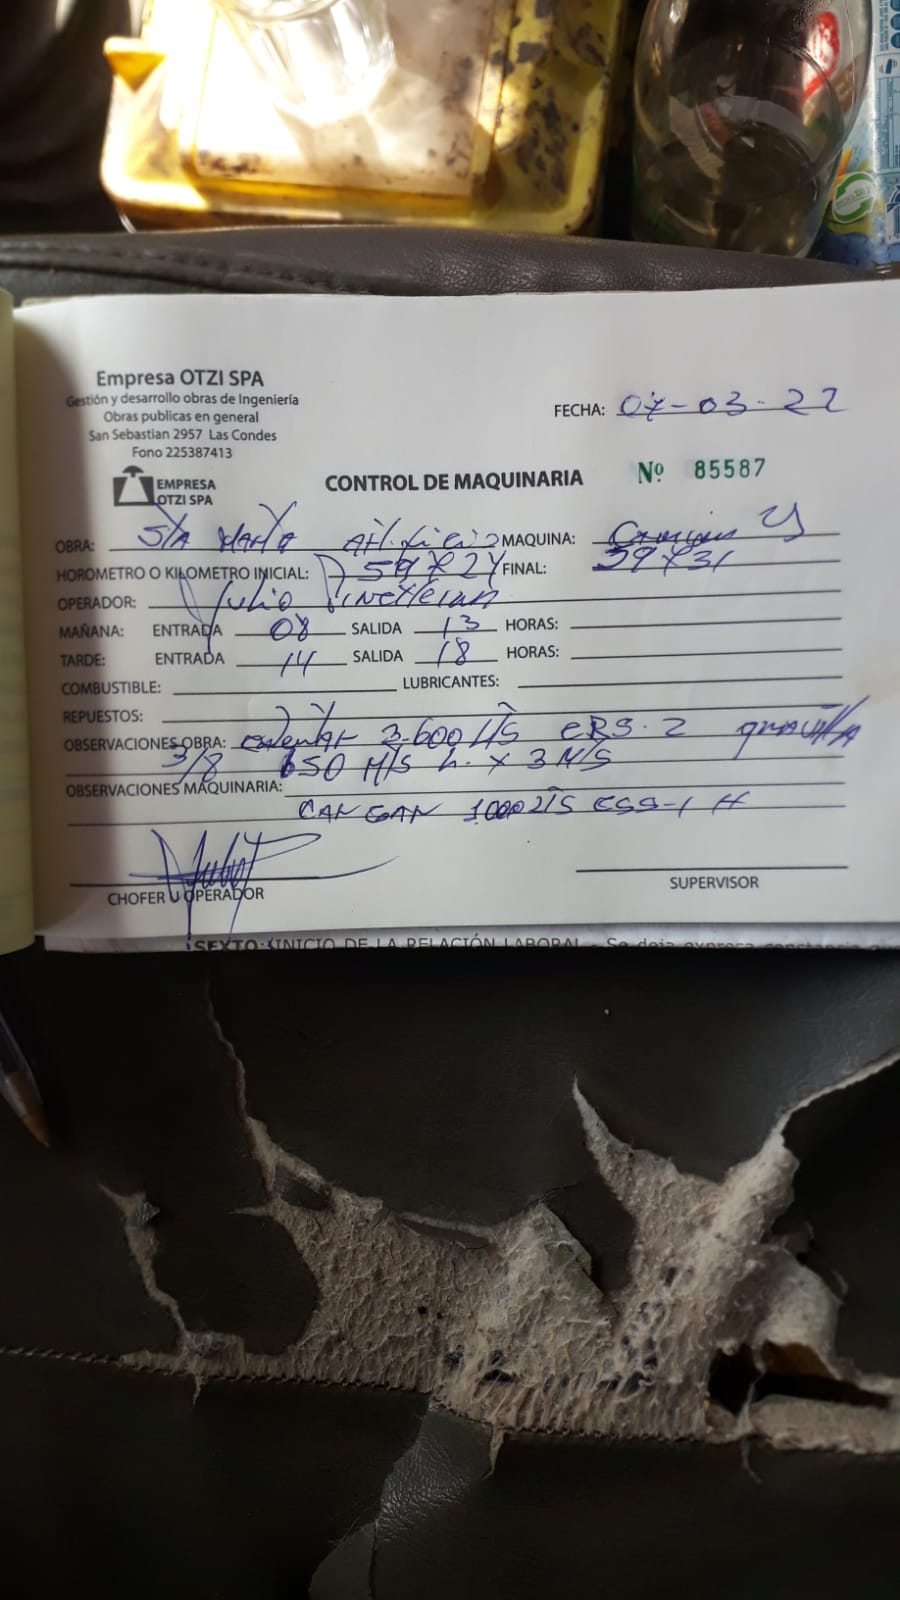 Empresa OTZI SPA
Gestión y desarrollo obras de Ingeniería
Obras publicas en general
San Sebastian 2957 Las Condes
Fono 225387413
EMPRESA
OTZI SPA
FECHA: 07-03-22
CONTROL DE MAQUINARIA Nº 85587
OBRA: STA MARTA MAQUINA:
HOROMETRO O KILOMETRO INICIAL: 59724 FINAL: 59731
OPERADOR: Julio
MAÑANA: ENTRADA 08 SALIDA 13 HORAS:
TARDE: ENTRADA 14 SALIDA 18 HORAS:
COMBUSTIBLE: LUBRICANTES:
REPUESTOS:
OBSERVACIONES OBRA: 3.600 LTS CRS-2 gravilla
3/8 650 M/S h. x 3 M/S
OBSERVACIONES MAQUINARIA:
CARGAR 1000 LTS CSS-1 H
CHOFER U OPERADOR
SUPERVISOR
SEXTO: INICIO DE LA RELACIÓN LABORAL.- Se deja expresa constancia